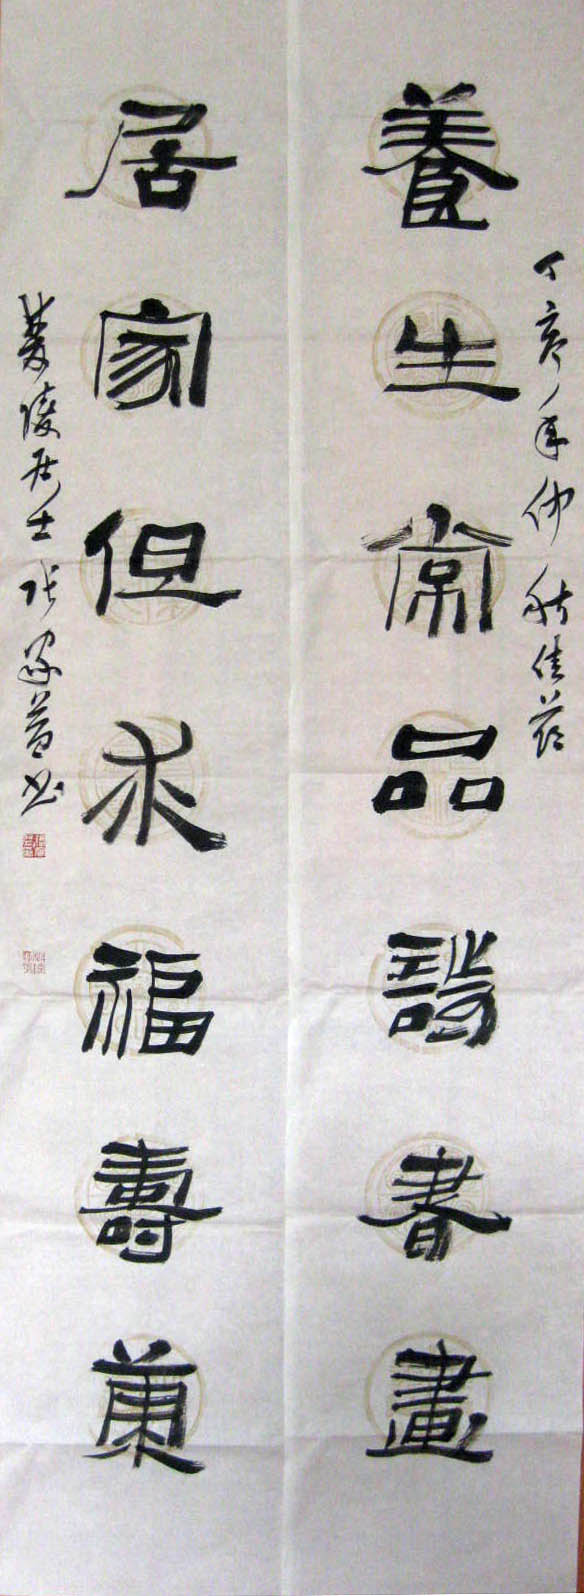 丁亥年仲秋佳節
養生常品詩書畫
居家但求福壽康
陵居士張家書